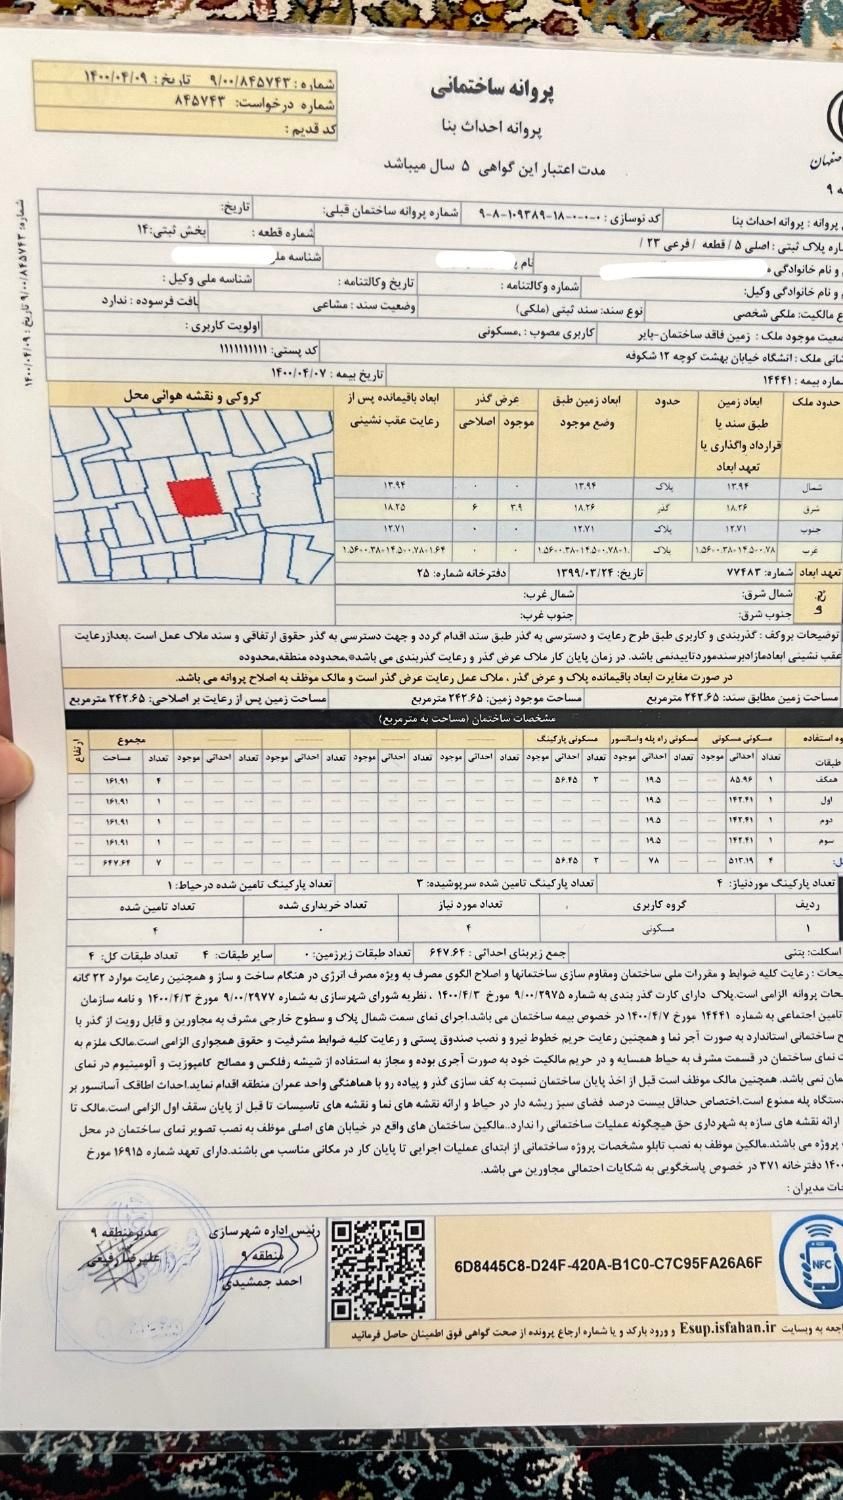 پروانه ساختمانی
پروانه احداث بنا
مدت اعتبار این گواهی ۵ سال میباشد
شماره : ۹/۰۰/۸۴۵۷۴۳ تاریخ : ۱۴۰۰/۰۴/۰۹
شماره درخواست: ۸۴۵۷۴۳
کد قدیم :
اصفهان
شماره: ۹/۰۰/۸۴۵۷۴۳ تاریخ : ۱۴۰۰/۰۴/۰۹
پروانه : پروانه احداث بنا کد نوسازی : ۰-۰-۰-۱۸-۱۰۹۳۸۹-۸-۹ شماره پروانه ساختمان قبلی: تاریخ:
پلاک ثبتی : اصلی ۵ / قطعه / فرعی ۲۳ / شماره قطعه : بخش ثبتی:۱۴
و نام خانوادگی نام شناسه
و نام خانوادگی وکیل: شماره وکالتنامه : تاریخ وکالتنامه : شناسه ملی وکیل :
مالکیت: ملکی شخصی نوع سند: سند ثبتی (ملکی) وضعیت سند : مشاعی بافت فرسوده : ندارد
موجود ملک : زمین فاقد ساختمان-بایر کاربری مصوب : ,مسکونی اولویت کاربری :
ملک : اتشگاه خیابان بهشت کوچه ۱۲ شکوفه کد پستی: ۱۱۱۱۱۱۱۱۱۱
بیمه : ۱۴۴۴۱ تاریخ بیمه : ۱۴۰۰/۰۴/۰۷
حدود ملک ابعاد زمین طبق سند یا قرارداد واگذاری یا تعهد ابعاد حدود ابعاد زمین طبق وضع موجود عرض گذر موجود اصلاحی ابعاد باقیمانده پس از رعایت عقب نشینی کروکی و نقشه هوائی محل
شمال ۱۳.۹۴ پلاک ۱۳.۹۴ ۰ ۰ ۱۳.۹۴
شرق ۱۸.۲۶ گذر ۱۸.۲۶ ۳.۹ ۶ ۱۸.۲۵
جنوب ۱۲.۷۱ پلاک ۱۲.۷۱ ۰ ۰ ۱۲.۷۱
غرب پلاک ۰ ۰
تعهد ابعاد شماره: ۷۷۴۸۳ تاریخ: ۱۳۹۹/۰۳/۲۴ دفترخانه شماره: ۲۵
شمال شرق: شمال غرب:
جنوب شرق: جنوب غرب:
توضیحات بروکف : گذربندی و کاربری طبق طرح رعایت و دسترسی به گذر طبق سند اقدام گردد و جهت دسترسی به گذر حقوق ارتفاقی و سند ملاک عمل است .بعدازرعایت
عقب نشینی ابعادمازادبرسندموردتاییدنمی باشد. در زمان پایان کار ملاک عرض گذر و رعایت گذربندی می باشد,محدوده منطقه,محدوده
در صورت مغایرت ابعاد باقیمانده پلاک و عرض گذر ، ملاک عمل رعایت عرض گذر است و مالک موظف به اصلاح پروانه می باشد.
مساحت زمین مطابق سند: ۲۴۲.۶۵ مترمربع مساحت موجود زمین: ۲۴۲.۶۵ مترمربع مساحت زمین پس از رعایت بر اصلاحی: ۲۴۲.۶۵ مترمربع
مشخصات ساختمان (مساحت به مترمربع)
استفاده مسکونی مسکونی مسکونی راه پله واسانسور مسکونی پارکینگ مجموع ارتفاع
طبقات تعداد احداثی موجود تعداد احداثی موجود تعداد احداثی موجود تعداد احداثی موجود تعداد احداثی موجود تعداد احداثی موجود تعداد مساحت
همکف ۱ ۸۵.۹۶ --- --- ۱۹.۵ --- ۳ ۵۶.۴۵ --- ۴ ۱۶۱.۹۱
اول ۱ ۱۴۲.۴۱ --- --- ۱۹.۵ --- ۱ ۱۶۱.۹۱
دوم ۱ ۱۴۲.۴۱ --- --- ۱۹.۵ --- ۱ ۱۶۱.۹۱
سوم ۱ ۱۴۲.۴۱ --- --- ۱۹.۵ --- ۱ ۱۶۱.۹۱
۴ ۵۱۳.۱۹ --- --- ۷۸ --- ۳ ۵۶.۴۵ --- ۷ ۶۴۷.۶۴
تعداد پارکینگ موردنیاز: ۴ تعداد پارکینگ تامین شده سرپوشیده: ۳ تعداد پارکینگ تامین شده درحیاط: ۱
ردیف گروه کاربری تعداد مورد نیاز تعداد خریداری شده تعداد تامین شده
۱ مسکونی ۴ ۰ ۴
اسکلت: بتنی جمع زیربنای احداثی : ۶۴۷.۶۴ تعداد طبقات زیرزمین: ۰ سایر طبقات: ۴ تعداد طبقات کل: ۴
رعایت کلیه ضوابط و مقررات ملی ساختمان ومقاوم سازی ساختمانها و اصلاح الگوی مصرف به ویژه مصرف انرژی در هنگام ساخت و ساز و همچنین رعایت موارد ۲۲ گانه
پروانه الزامی است.پلاک دارای کارت گذر بندی به شماره ۹/۰۰/۲۹۷۵ مورخ ۱۴۰۰/۴/۳ ، نظریه شورای شهرسازی به شماره ۹/۰۰/۲۹۷۷ مورخ ۱۴۰۰/۴/۳ و نامه سازمان
تامین اجتماعی به شماره ۱۴۴۴۱ مورخ ۱۴۰۰/۴/۷ در خصوص بیمه ساختمان می باشد.اجرای نمای سمت شمال پلاک و سطوح خارجی مشرف به مجاورین و قابل رویت از گذر با
ساختمانی استاندارد به صورت آجر نما و همچنین رعایت حریم خطوط نیرو و نصب صندوق پستی و رعایت کلیه ضوابط مشرفیت و حقوق همجواری الزامی است.مالک ملزم به
نمای ساختمان در قسمت مشرف به حیاط همسایه و در حریم مالکیت خود به صورت آجری بوده و مجاز به استفاده از شیشه رفلکس و مصالح کامپوزیت و آلومینیوم در نمای
نمی باشد. همچنین مالک موظف است قبل از اخذ پایان ساختمان نسبت به کف سازی گذر و پیاده رو با هماهنگی واحد عمران منطقه اقدام نماید.احداث اطاقک آسانسور بر
دستگاه پله ممنوع است.اختصاص حداقل بیست درصد فضای سبز ریشه دار در حیاط و ارائه نقشه های نما و نقشه های تاسیسات تا قبل از پایان سقف اول الزامی است.مالک تا
ارائه نقشه های سازه به شهرداری حق هیچگونه عملیات ساختمانی را ندارد..مالکین ساختمان های واقع در خیابان های اصلی موظف به نصب تصویر نمای ساختمان در محل
پروژه می باشند.مالکین موظف به نصب تابلو مشخصات پروژه ساختمانی از ابتدای عملیات اجرایی تا پایان کار در مکانی مناسب می باشند.دارای تعهد شماره ۱۶۹۱۵ مورخ
دفترخانه ۳۷۱ در خصوص پاسخگویی به شکایات احتمالی مجاورین می باشد.
مدیران :
رئیس اداره شهرسازی
منطقه ۹
احمد جمشیدی
مدیرمنطقه ۹
علیرضا رفیعی
6D8445C8-D24F-420A-B1C0-C7C95FA26A6F
NFC
به وبسایت Esup.isfahan.ir و ورود بارکد و یا شماره ارجاع پرونده از صحت گواهی فوق اطمینان حاصل فرمائید